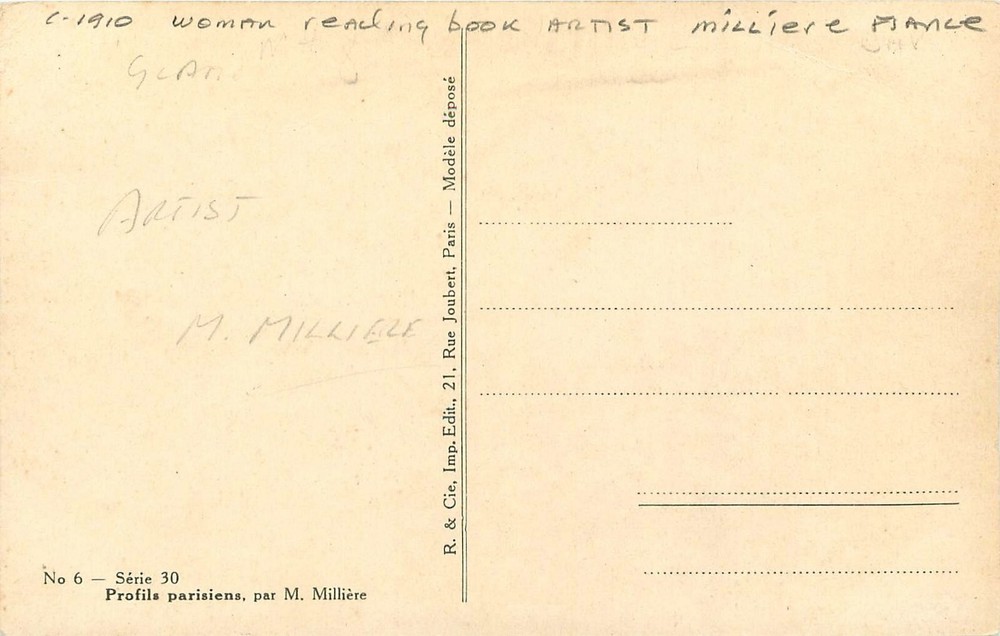 C-1910 WOMAN reading book ARTIST Milliere FRANCE
ARTIST
M. MILLIERE
R. & Cie, Imp. Edit., 21, Rue Joubert, Paris — Modèle déposé
No 6 — Série 30
Profils parisiens, par M. Millière